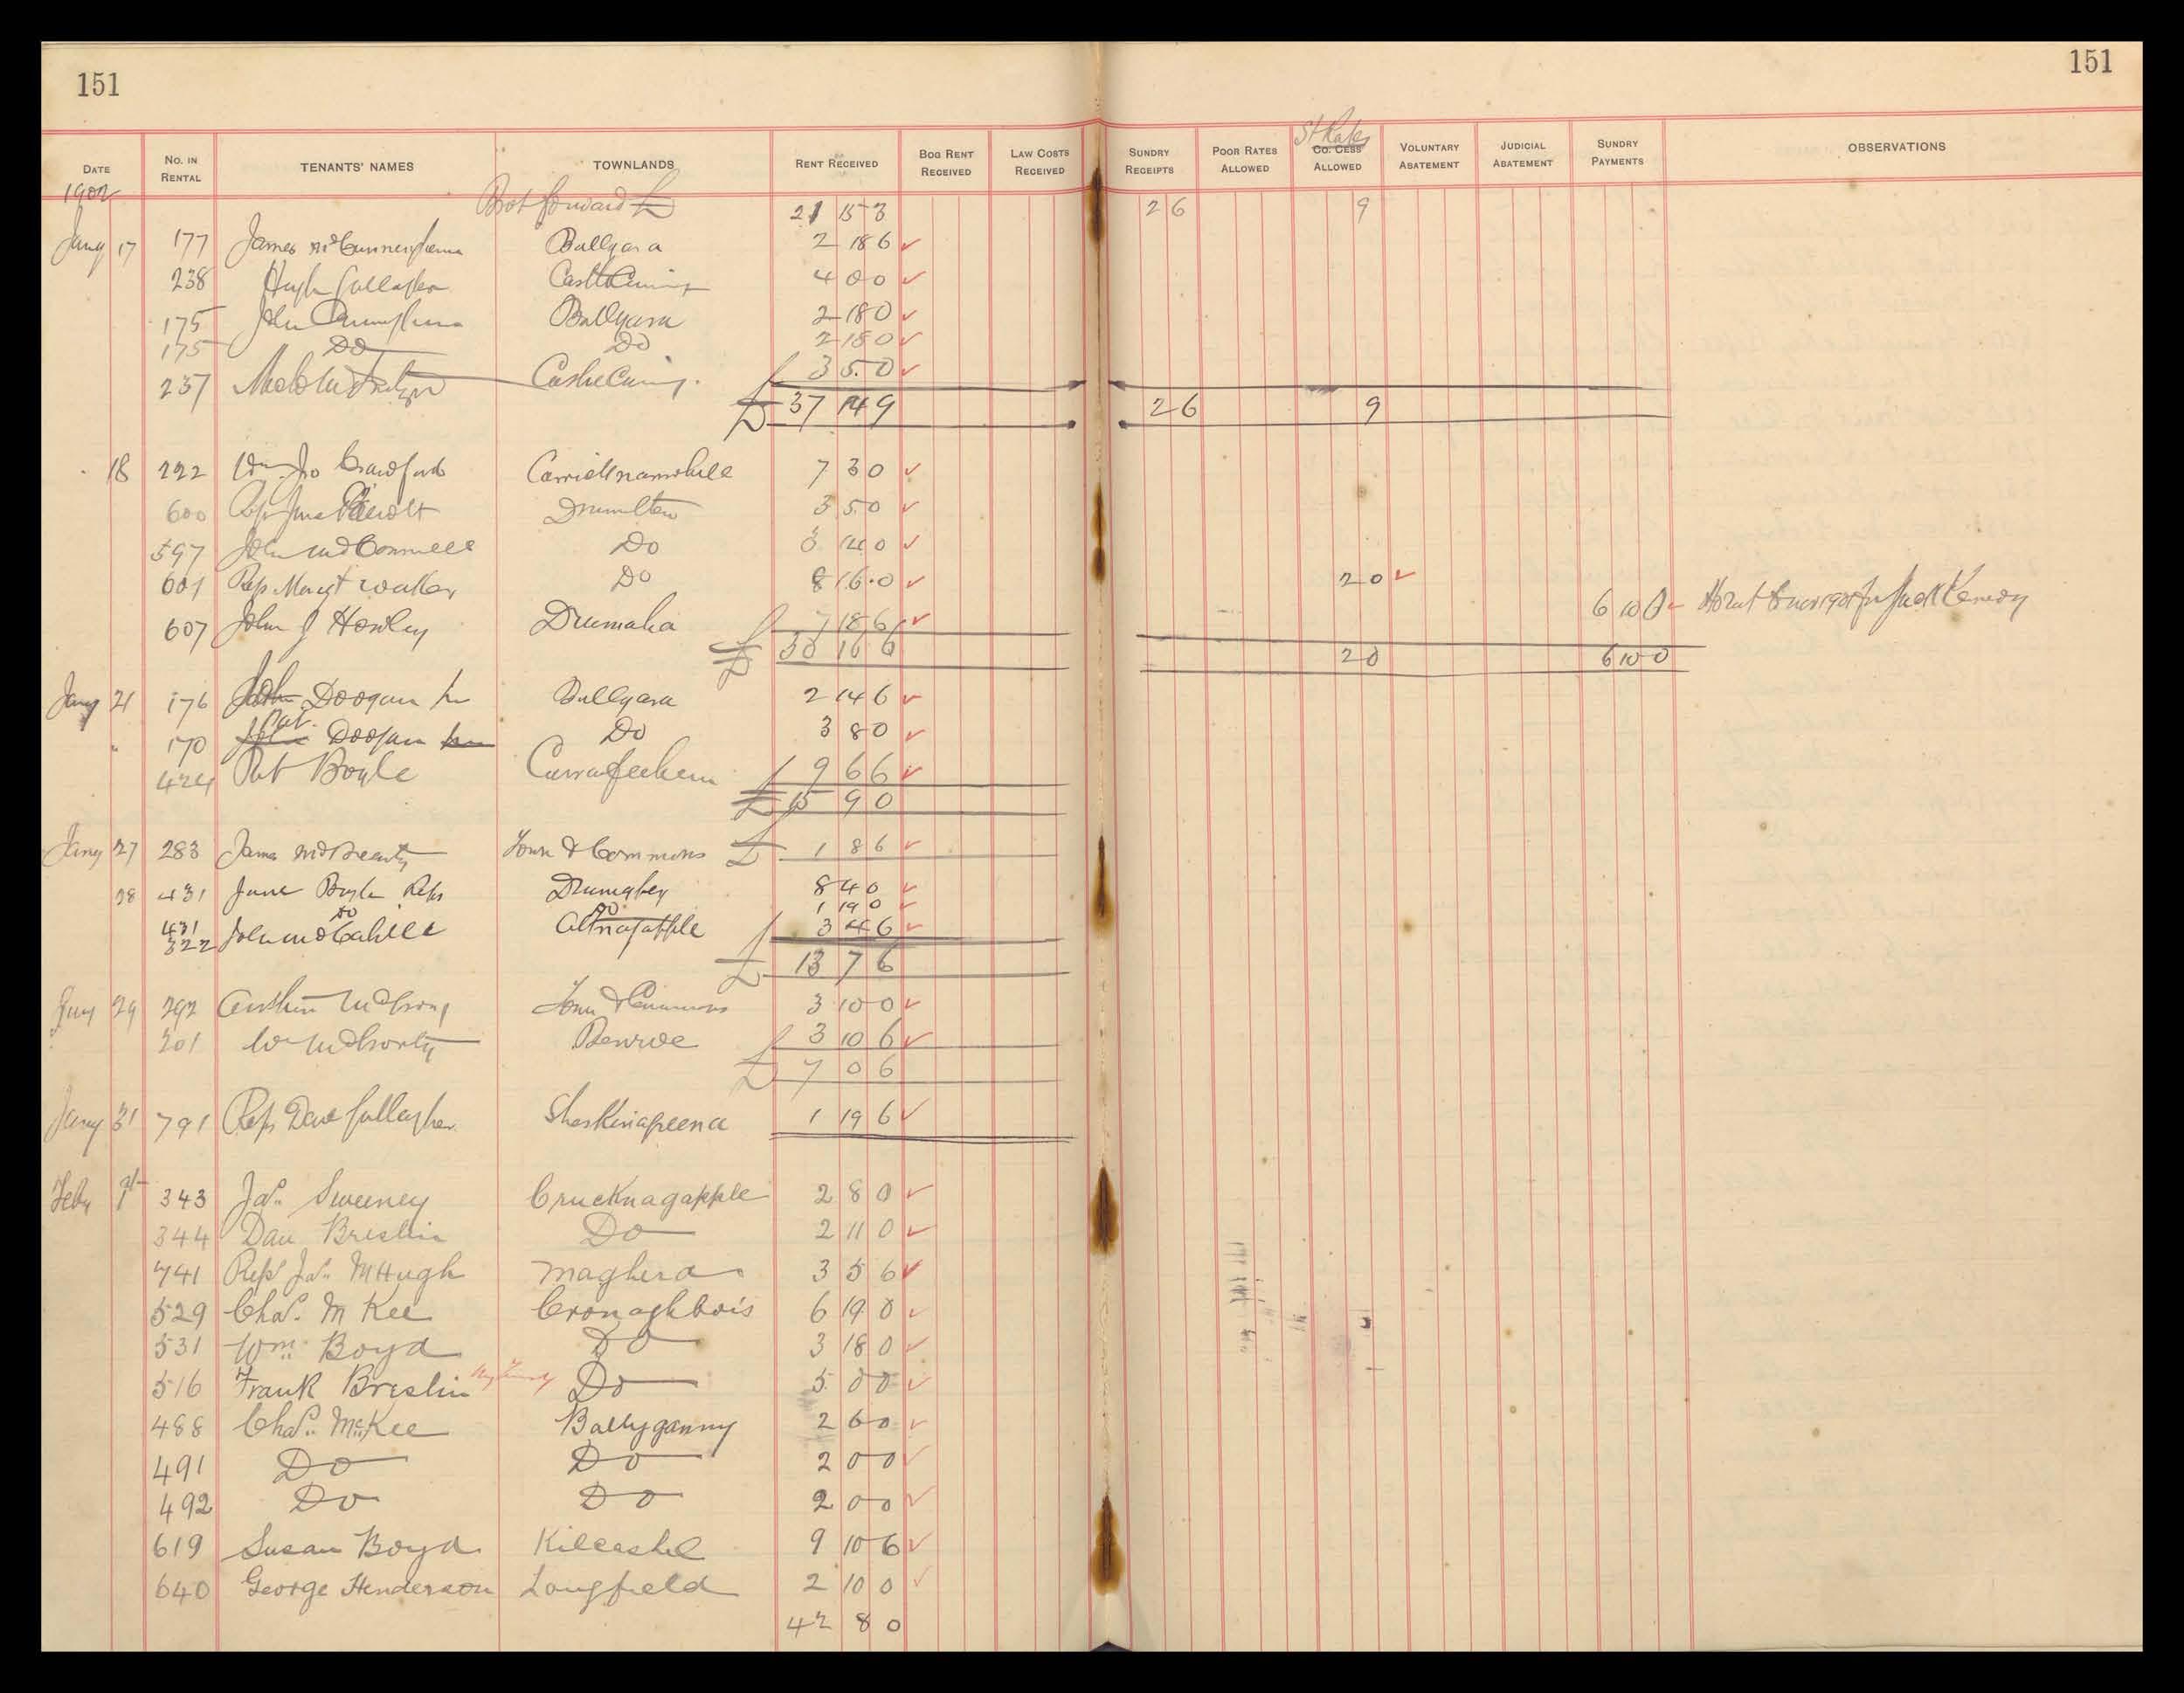 151
151
DATE
NO. IN RENTAL
TENANTS' NAMES
TOWNLANDS
RENT RECEIVED
BOG RENT RECEIVED
LAW COSTS RECEIVED
SUNDRY RECEIPTS
POOR RATES ALLOWED
St Rates
CO. CESS ALLOWED
VOLUNTARY ABATEMENT
JUDICIAL ABATEMENT
SUNDRY PAYMENTS
OBSERVATIONS
1902
Brot forward £ 21 15 3 2 6 9
Jany 17 177 James McCunningham Ballyara 2 18 6
238 Hugh Gallagher 4 0 0
175 John Cunningham Ballyara 2 18 0
175 Do Do 2 18 0
237 3 5 0
£ 37 14 9 2 6 9
18 222 Wm Jno Crawford 7 3 0
600 3 5 0
597 John McConnell Do 3 14 0
601 Reps Margt Walker Do 8 16 0 2 0
607 John J Howley Drumaha 7 18 6 6 10 0
£ 30 16 6 2 0 6 10 0
Jany 21 176 John Doogan Ballyara 2 14 6
170 Pat Doogan Do 3 8 0
424 Pat Boyle 9 6 6
£ 15 9 0
Jany 27 283 James Town & Commons £ 1 8 6
28 431 Jane Boyle Reps 8 4 0
431 Do Do 1 19 0
322 John McCahill Altnagapple 3 4 6
£ 13 7 6
Jany 29 292 Town & Commons 3 10 0
201 Wm Benroe 3 10 6
£ 7 0 6
Jany 31 791 Reps Gallagher 1 19 6
Feby 1st 343 Jas. Sweeney Crucknagapple 2 8 0
344 Dan Breslin Do 2 11 0
741 Reps Jas. McHugh Maghera 3 5 6
529 Chas. McKee Cronaghbois 6 19 0
531 Wm. Boyd Do 3 18 0
516 Frank Breslin Do 5 0 0
488 Chas. McKee Ballyganny 2 6 0
491 Do Do 2 0 0
492 Do Do 2 0 0
619 Susan Boyd Kilcashel 9 10 6
640 George Henderson Longfield 2 10 0
42 8 0